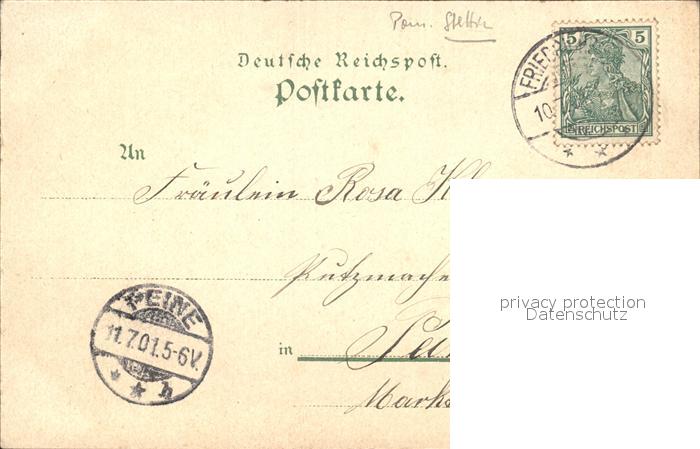 Pom. Stettin
Deutsche Reichspost.
Postkarte.
5 5
REICHSPOST
FRIED
10.7
An
Fräulein Rosa Kl
Putzmache
PEINE
11.7.01.5-6V.
* * h
in Pei
Markt
privacy protection
Datenschutz